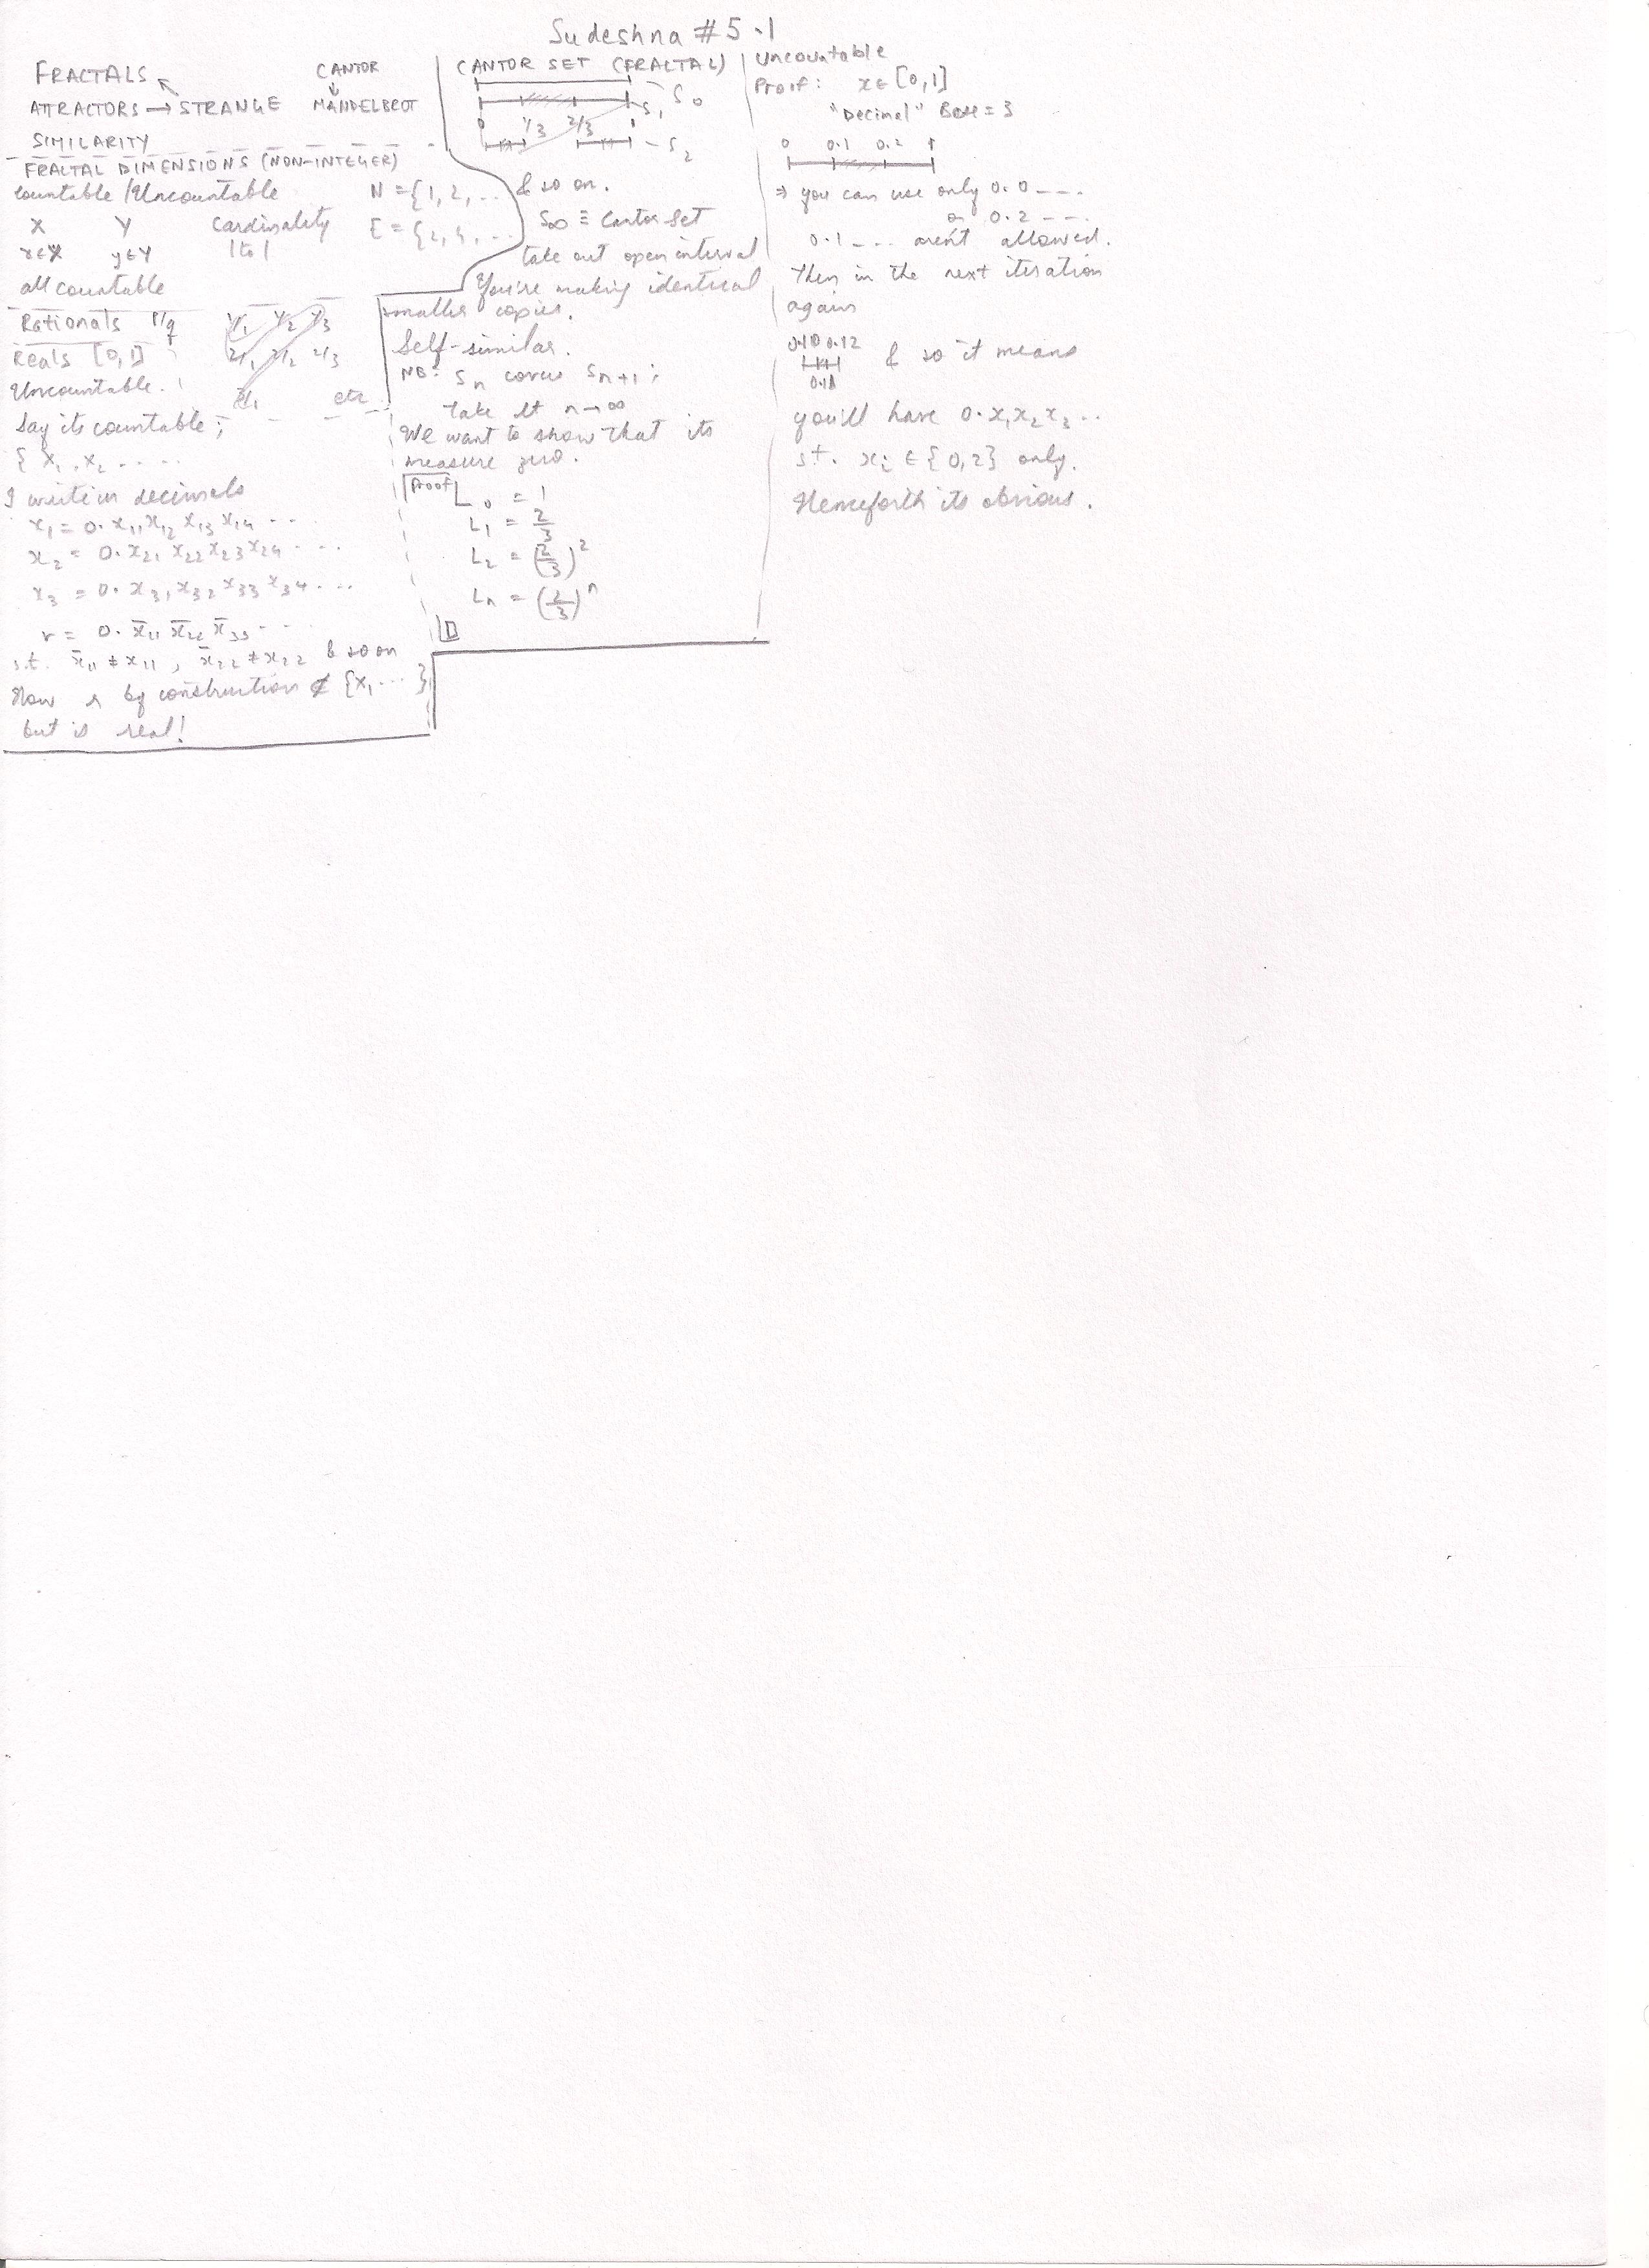 Sudeshna #5.1
FRACTALS
CANTOR
ATTRACTORS → STRANGE MANDELBROT
SIMILARITY
FRACTAL DIMENSIONS (NON-INTEGER)
Countable/Uncountable N = {1, 2, ...
X Y Cardinality E = {2, 4, ...
x∈X y∈Y 1 to 1
all countable
Rationals p/q 1/1 1/2 1/3
Reals [0,1] 2/1 2/2 2/3
Uncountable. 3/1 etc
Say its countable;
{x₁, x₂ .....
I write in decimals
x₁ = 0.x₁₁x₁₂x₁₃x₁₄...
x₂ = 0.x₂₁x₂₂x₂₃x₂₄....
x₃ = 0.x₃₁x₃₂x₃₃x₃₄...
r = 0.x̄₁₁x̄₂₂x̄₃₃...
s.t. x̄₁₁ ≠ x₁₁, x̄₂₂ ≠ x₂₂ & so on
Now r by construction ∉ {x₁...}
but is real!
CANTOR SET (FRACTAL)
S₀
S₁
0 1/3 2/3 1
S₂
& so on.
S∞ ≡ Cantor Set
take out open interval
You're making identical
smaller copies.
Self-similar.
NB: Sₙ covers Sₙ₊₁;
take lt n→∞
We want to show that its
measure zero.
Proof L₀ = 1
L₁ = 2/3
L₂ = (2/3)²
Lₙ = (2/3)ⁿ
Uncountable
Proof: x∈[0,1]
"Decimal" Base = 3
0 0.1 0.2 1
⇒ you can use only 0.0----
or 0.2 ---.
0.1--- aren't allowed.
Then in the next iteration
again
0.10 0.12
& so it means
0.11
you'll have 0.x₁x₂x₃...
s.t. xᵢ ∈ {0,2} only.
Henceforth its obvious.